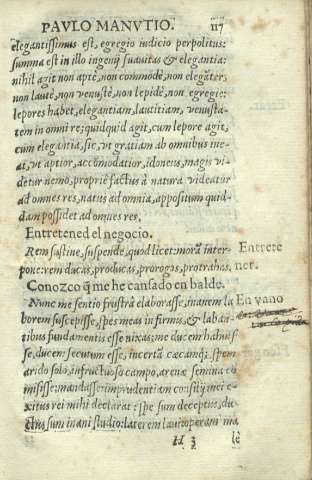 PAVLO MANVTIO. 117
elegantissimus est, egregio iudicio perpolitus:
summa est in illo ingenij suauitas & elegantia:
nihil agit non aptè, non commodè, non elegãter,
non lautè, non venustè, non lepidè, non egregie:
lepores habet, elegantiam, lautitiam, venusta-
tem in omni re; quidquid agit, cum lepore agit,
cum elegantia, sic, vt gratiam ab omnibus ine-
at, vt aptior, accõmodatior, idoneus, magis vi-
detur nemo, propriè factus à natura videatur
ad omnes res, natus ad omnia, appositum quid-
dam possidet ad omnes res,
Entretened el negocio.
Rem sustine, suspende, quod licet: morã inter- Entrete
pone: rem ducas, producas, proroges, protrahas, ner.
Conozco q̃ me he cansado en balde.
Nunc me sentio frustrà elaborasse, inanem la En vano
borem suscepisse, spes meas infirmis, & laban-
tibus fundamentis esse nixas; me ducem habuis
se, ducem secutum esse, incertã cæcamq; spem
arido solo, infructuoso campo, arenæ semina co
misisse: mandasse: imprudentiam consilij mei e-
xitus rei mihi declarat: spe sum deceptus, du-
ctus sum inani studio: laterem laui: operam ma,
le